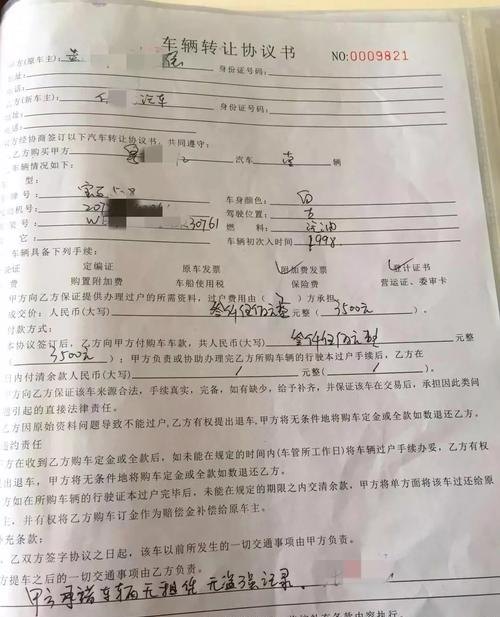 车辆转让协议书 NO:0009821
方(原车主): 身份证号码:
址:
电话:
方(新车主): 汽车 身份证号码:
址:
电话:
双方经协商签订以下汽车转让协议书,共同遵守:
乙方购买甲方 汽车 壹 辆
车辆情况如下:
型: 宝马 车身颜色: 白
牌号: 驾驶位置: 左
动机号: 燃料: 汽油
架号: 30761 车辆初次入时间: 1998
它
车辆具备下列手续:
证 定编证 原车发票 附加费发票 登计证书
购置附加费 车船使用税 保险费 营运证、委审卡
甲方向乙方保证提供办理过户的所需资料,过户费用由( )方承担
成交价:人民币(大写) 叁仟伍佰元整 元整( 3500元 )
付款方式:
本协议签订后,乙方向甲方付购车车款,共人民币(大写) 叁仟伍佰元整 元整
( 3500元 );甲方负责或协助办理完乙方所购车辆的行驶本过户手续后,乙方在
日内付清余款人民币(大写) / 元整( / )元
甲方向乙方保证该车来源合法,手续真实,完备,如有缺少,给予补齐,并保证该车在交易后,承担因此类问
题引起的直接法律责任。
乙方因原始资料问题导致不能过户,乙方有权提出退车,甲方将无条件地将购车定金或全款如数退还乙方。
违约责任
方在收到乙方购车定金或全款后,如未能在规定的时间内(车管所工作日)将车辆过户手续办妥,乙方有权
提出退车,甲方将无条件地将购车定金或全款如数退还乙方。
方如在所购车辆的行驶证本过户完毕后,未能在规定的期限之内交清余款,甲方将单方面将该车过还给原
主,并有权将乙方购车订金作为赔偿金补偿给原车主。
补充条款:
、乙双方签字协议之日起,该车以前所发生的一切交通事项由甲方负责。
方提车之后的一切交通事项由乙方负责。
甲方承诺车辆无租贷 无盗强记录